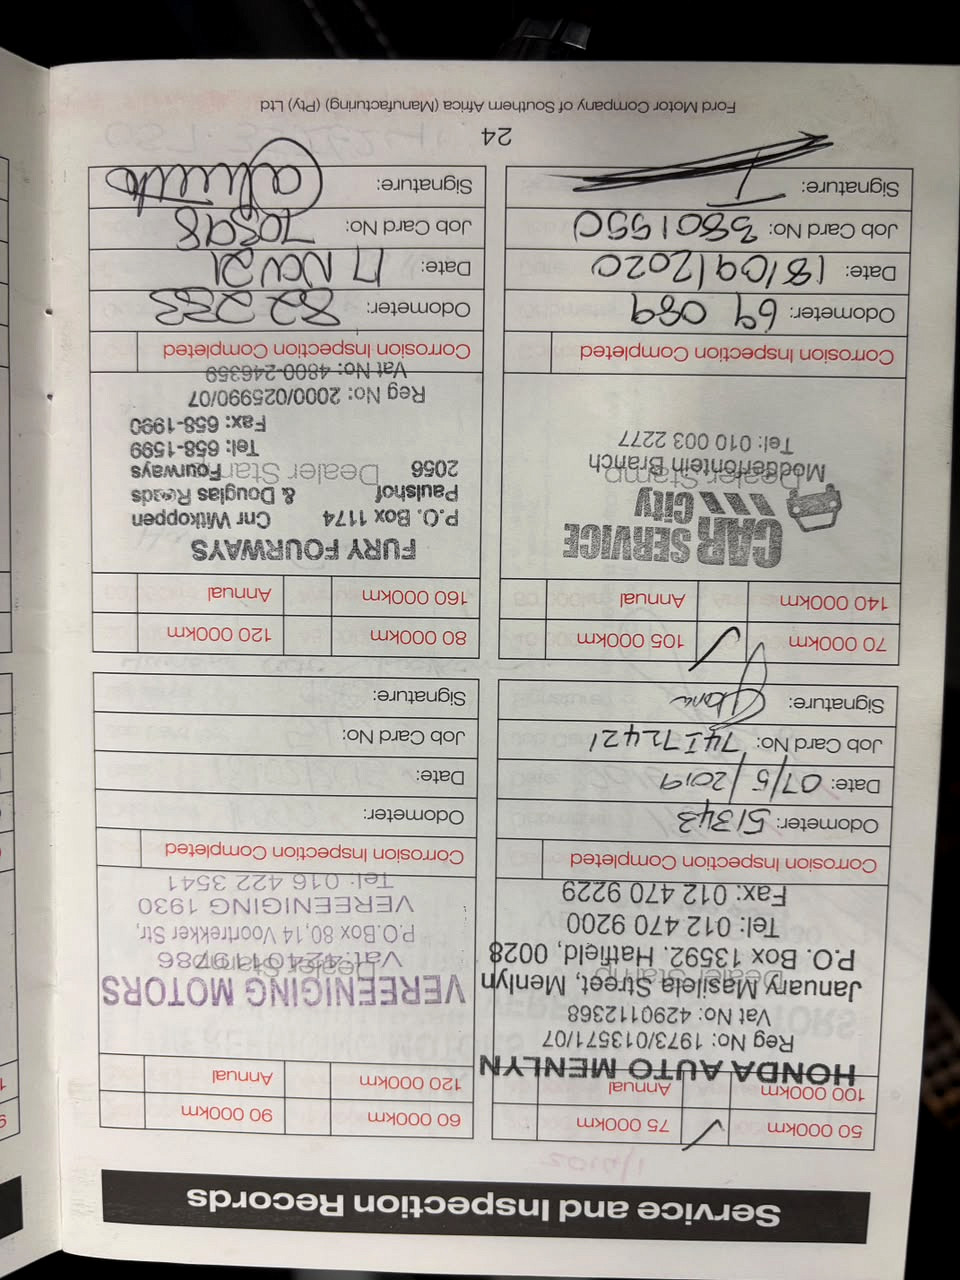 Service and Inspection Records
50 000km 75 000km
100 000km Annual
HONDA AUTO MENLYN
Reg No: 1973/013571/07
Vat No: 4290112368
January Masilela Street, Menlyn
Dealer Stamp
P.O. Box 13592. Hatfield, 0028
Tel: 012 470 9200
Fax: 012 470 9229
Corrosion Inspection Completed
Odometer: 51343
Date: 07/5/2019
Job Card No: 74I72421
Signature:
60 000km 90 000km
120 000km Annual
VEREENIGING MOTORS
Dealer Stamp
Vat: 4240119786
P.O. Box 80, 14 Voortrekker Str,
VEREENIGING 1930
Tel: 016 422 3541
Corrosion Inspection Completed
Odometer:
Date:
Job Card No:
Signature:
70 000km 105 000km
140 000km Annual
CAR SERVICE
City
Dealer Stamp
Modderfontein Branch
Tel: 010 003 2277
Corrosion Inspection Completed
Odometer: 69 089
Date: 18/09/2020
Job Card No: 3801550
Signature:
80 000km 120 000km
160 000km Annual
FURY FOURWAYS
P.O. Box 1174 Cnr Witkoppen
Paulshof & Douglas Roads
2056 Dealer Stamp Fourways
Tel: 658-1599
Fax: 658-1990
Reg No: 2000/025990/07
Vat No: 4800-246359
Corrosion Inspection Completed
Odometer: 82 283
Date: 17 NOV 21
Job Card No: 70898
Signature:
24
Ford Motor Company of Southern Africa (Manufacturing) (Pty) Ltd